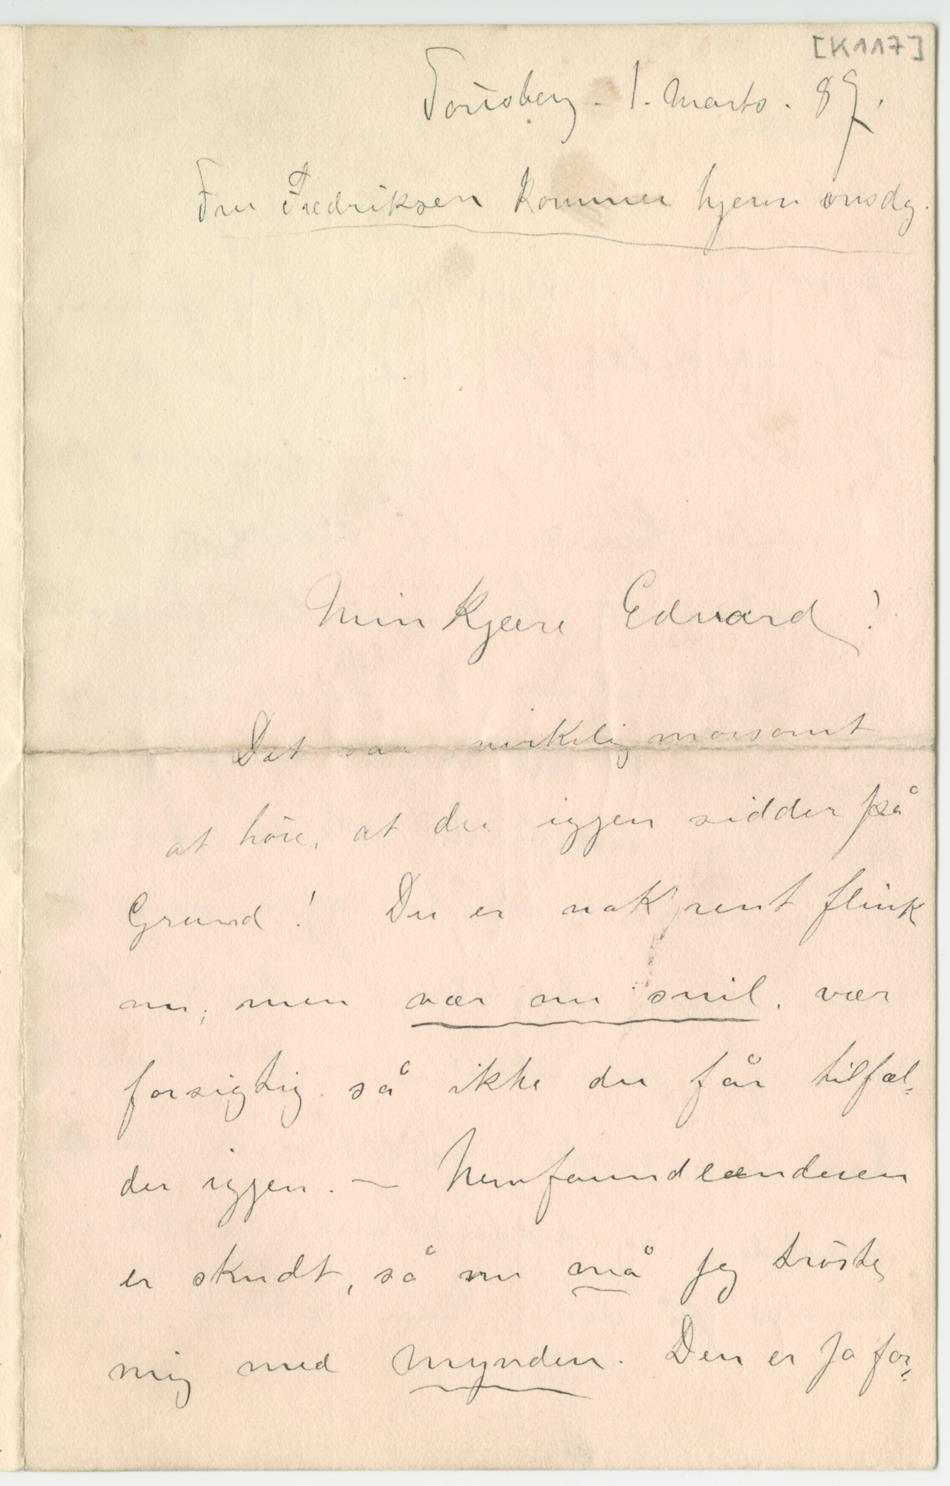 [K117]
Tönsberg. 1. Marts. 89.
Fru Fredriksen kommer hjem onsdg.
Min kjære Edvard!
Det var virkelig morsomt
at höre, at du igjen sidder på
Grand! Du er nok rent flink
nu, men vær nu snil. vær
forsigtig så ikke du får tilfæl-
der igjen. — Newfoundlænderen
er skudt, så nu må jeg tröste
mig med Mynden. Den er jo for-